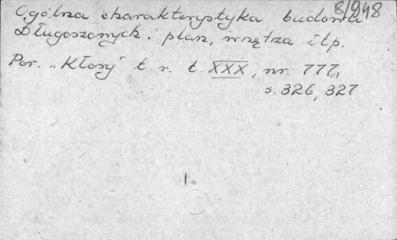 8/948
Ogólna charakterystyka budowli
Długoszowych: plan, wnętrza itp.
Por. "Kłosy" t. r. t. XXX, nr. 777,
s. 326, 327